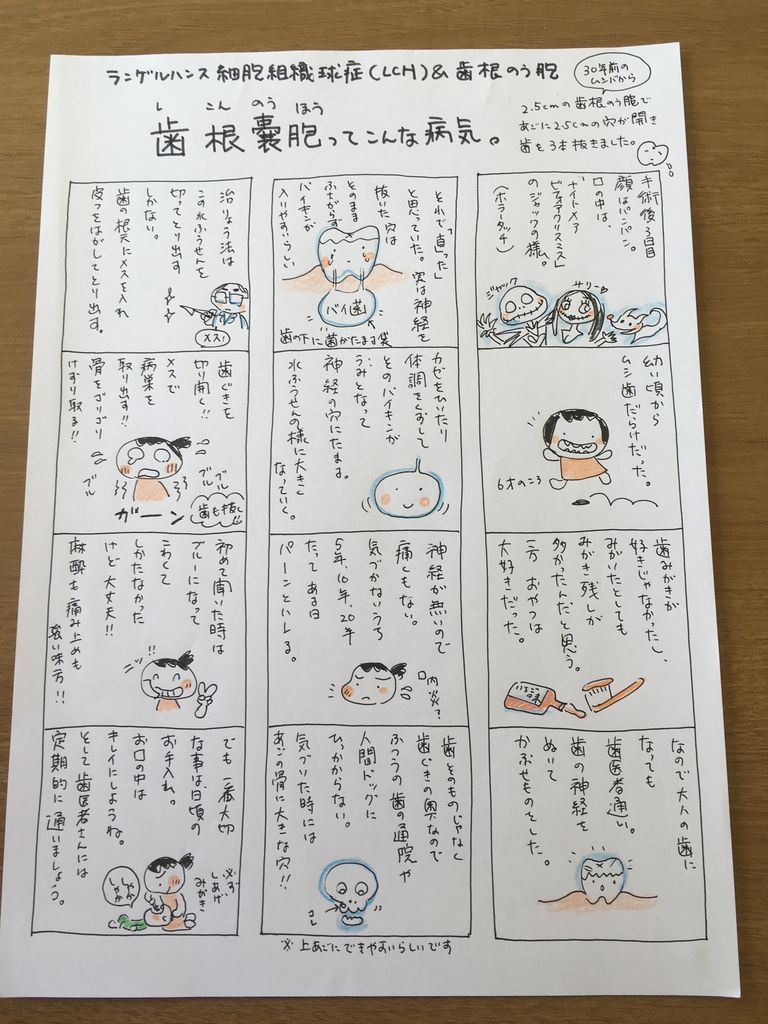 ランゲルハンス細胞組織球症(LCH)&歯根のう胞
30年前の
ムシバから
し こん のう ほう
歯根嚢胞ってこんな病気。
2.5cmの歯根のう胞で
あごに2.5cmの穴が開き
歯を3本抜きました。
手術後3日目
顔はパンパン。
口の中は、
ナイトメア
ビフォアクリスマス」
のジャックの様。
(ホラータッチ)
ジャック
サリー
幼い頃から
ムシ歯だらけだった。
6才のころ
歯みがきが
好きじゃなかったし、
みがいたとしても
みがき残しが
多かったんだと思う。
一方 おやつは
大好きだった。
いちご味
なので大人の歯に
なっても
歯医者通い。
歯の神経を
ぬいて
かぶせものをした。
それで「直った」
と思っていた。実は神経を
抜いた穴は
そのまま
ふさがらず
バイキンが
入りやすいらしい
バイ菌
歯の下に菌がたまる袋
カゼをひいたり
体調をくずして
そのバイキンが
うみとなって
神経の穴にたまる。
水ふうせんの様に大きく
なっていく。
神経が無いので
痛くもない。
気づかないうち
5年、10年、20年
たって ある日
パーンとハレる。
口内炎?
歯そのものじゃなく
歯ぐきの奥なので
ふつうの歯の通院や
人間ドックに
ひっからない。
気づいた時には
あごの骨に大きな穴!!
コレ
※上あごにできやすいらしいです
治りょう法は
この水ふうせんを
切ってとり出す
しかない。
歯の根元にメスを入れ
皮フをはがしてとり出す。
メス!
歯ぐきを
切り開く!!
メスで
病巣を
取り出す!!
骨をゴリゴリ
けずり取る!!
ブル
ブル
ブル
ガーン
歯も抜くし
初めて聞いた時は
ブルーになって
こわくて
しかたなかった
けど 大丈夫!!
麻酔も痛み止めも
強い味方!!
でも 一番大切
な事は、日頃の
お手入れ。
お口の中は
キレイにしようね。
そして 歯医者さんには
定期的に通いましょう。
必ず
しあげ
みがき
しゃか
しゃか